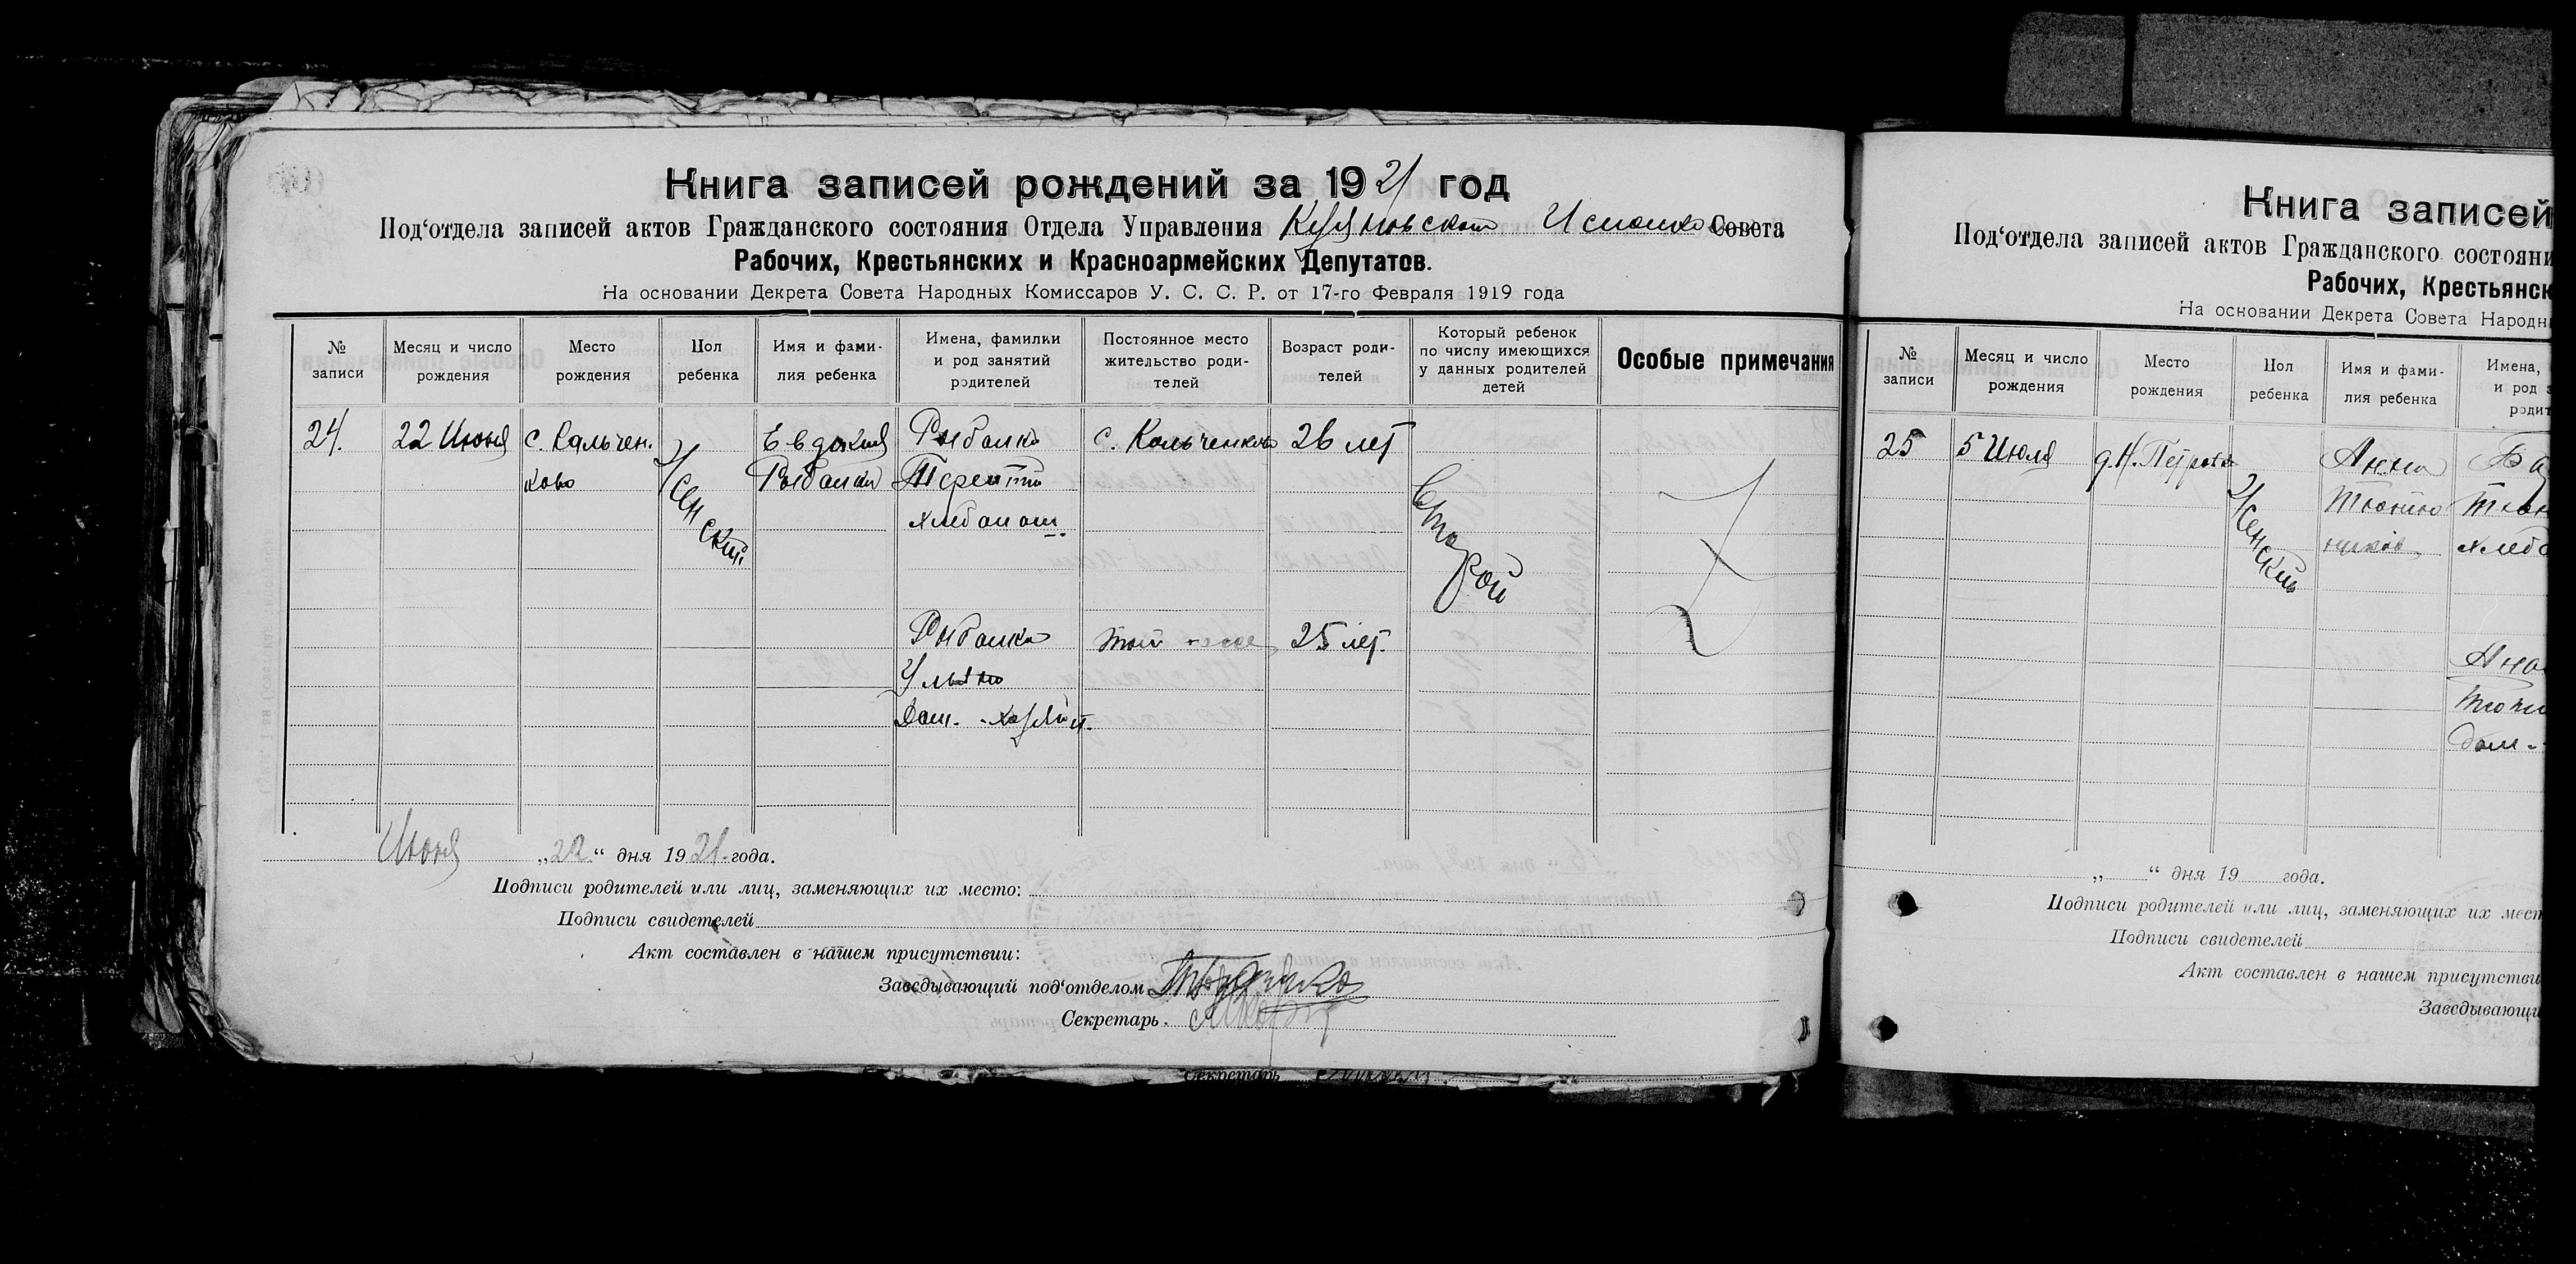 Книга записей рождений за 1921 год
Под‘отдела записей актов Гражданского состояния Отдела Управления Совета
Рабочих, Крестьянских и Красноармейских Депутатов.
На основании Декрета Совета Народных Комиссаров У. С. С. Р. от 17-го Февраля 1919 года
№ записи
Месяц и число рождения
Место рождения
Пол ребенка
Имя и фами-
лия ребенка
Имена, фамилки
и род занятий
родителей
Постоянное место
жительство роди-
телей
Возраст роди-
телей
Который ребенок
по числу имеющихся
у данных родителей
детей
Особые примечания
24.
22 Июня
с. Кальчен.
ково
Женский
Евдокия
Рыбалка
Рыбалка
Терентий
хлебопаш.
с. Кальченково
26 лет
Второй
Рыбалка
Ульяна
Дом. хозяйст.
25 лет.
Июня „22“ дня 1921 года.
Подписи родителей или лиц, заменяющих их место:
Подписи свидетелей
Акт составлен в нашем присутствии:
Заведывающий под‘отделом
Секретарь
Секретарь
Книга записей
Под‘отдела записей актов Гражданского состояни
Рабочих, Крестьянск
На основании Декрета Совета Народн
№ записи
Месяц и число рождения
Место рождения
Пол ребенка
Имя и фами-
лия ребенка
Имена,
и род з
родит
25
5 Июля
д. Н. Петровка
Женский
Анна
„ “ дня 19 года.
Подписи родителей или лиц, заменяющих их мест
Подписи свидетелей
Акт составлен в нашем присутстви
Заведывающи